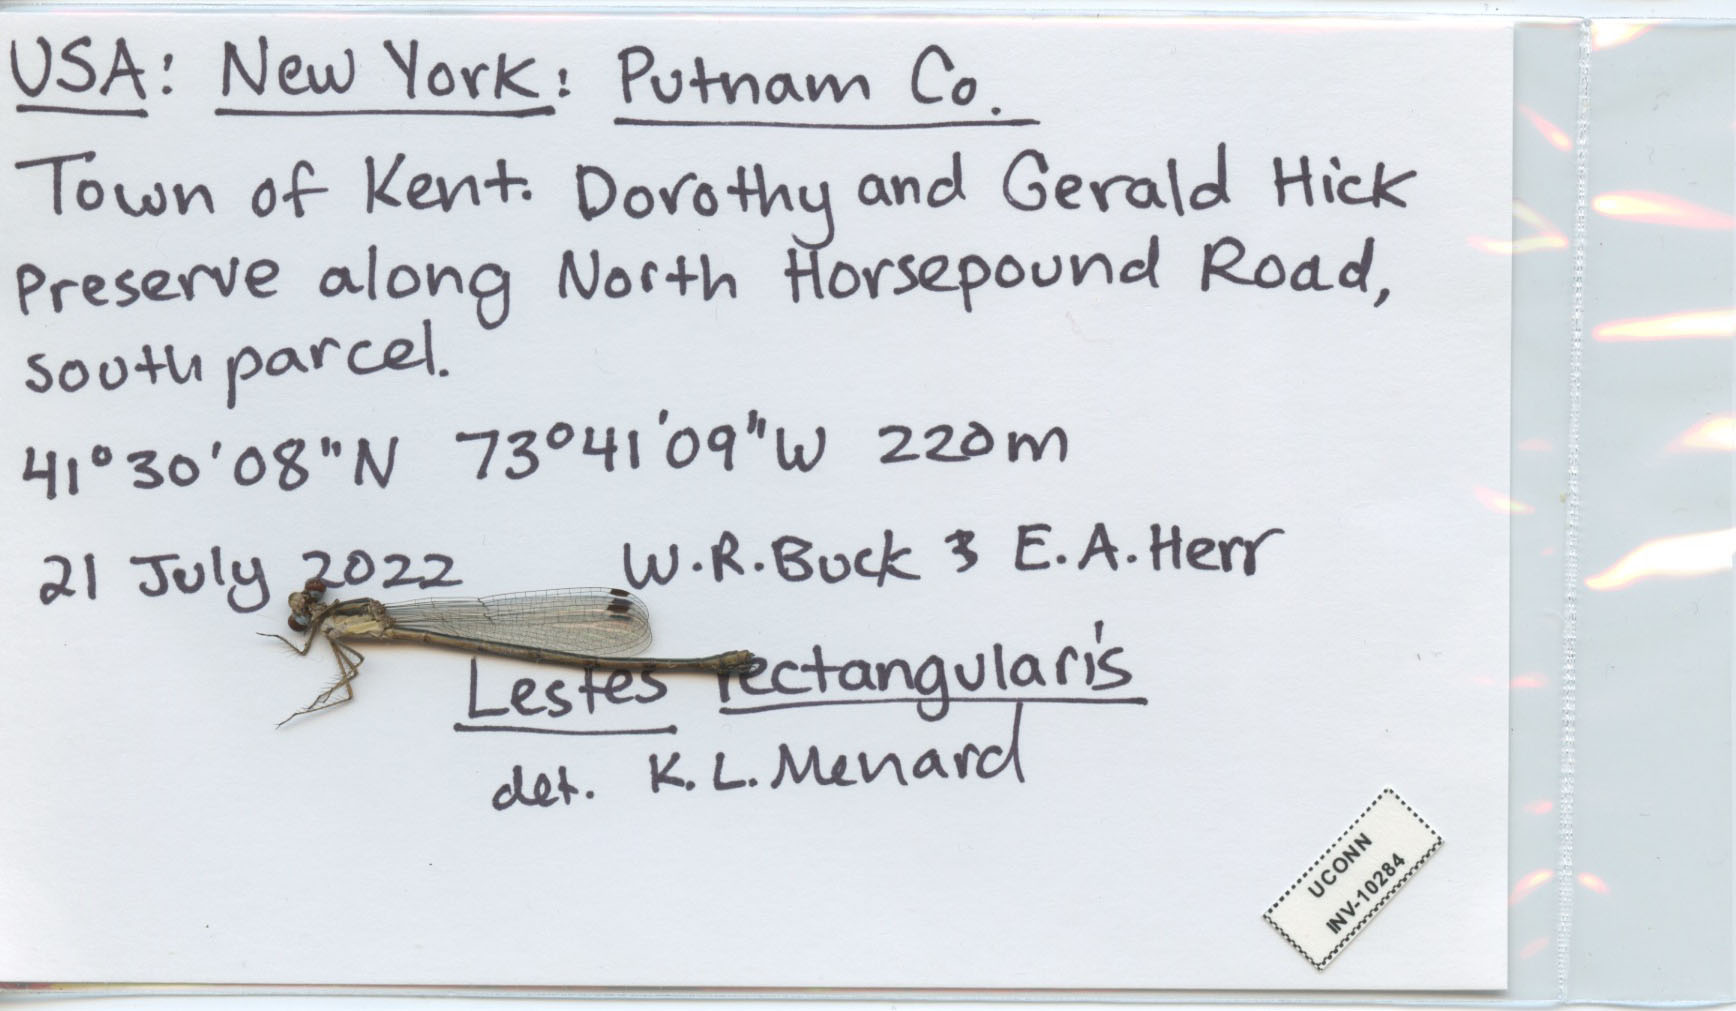 USA: New York: Putnam Co.
Town of Kent. Dorothy and Gerald Hick
Preserve along North Horsepound Road,
south parcel.
41°30'08"N 73°41'09"W 220m
21 July 2022 W.R. Buck & E.A. Herr
Lestes rectangularis
det. K.L. Menard
UCONN
INV-10284